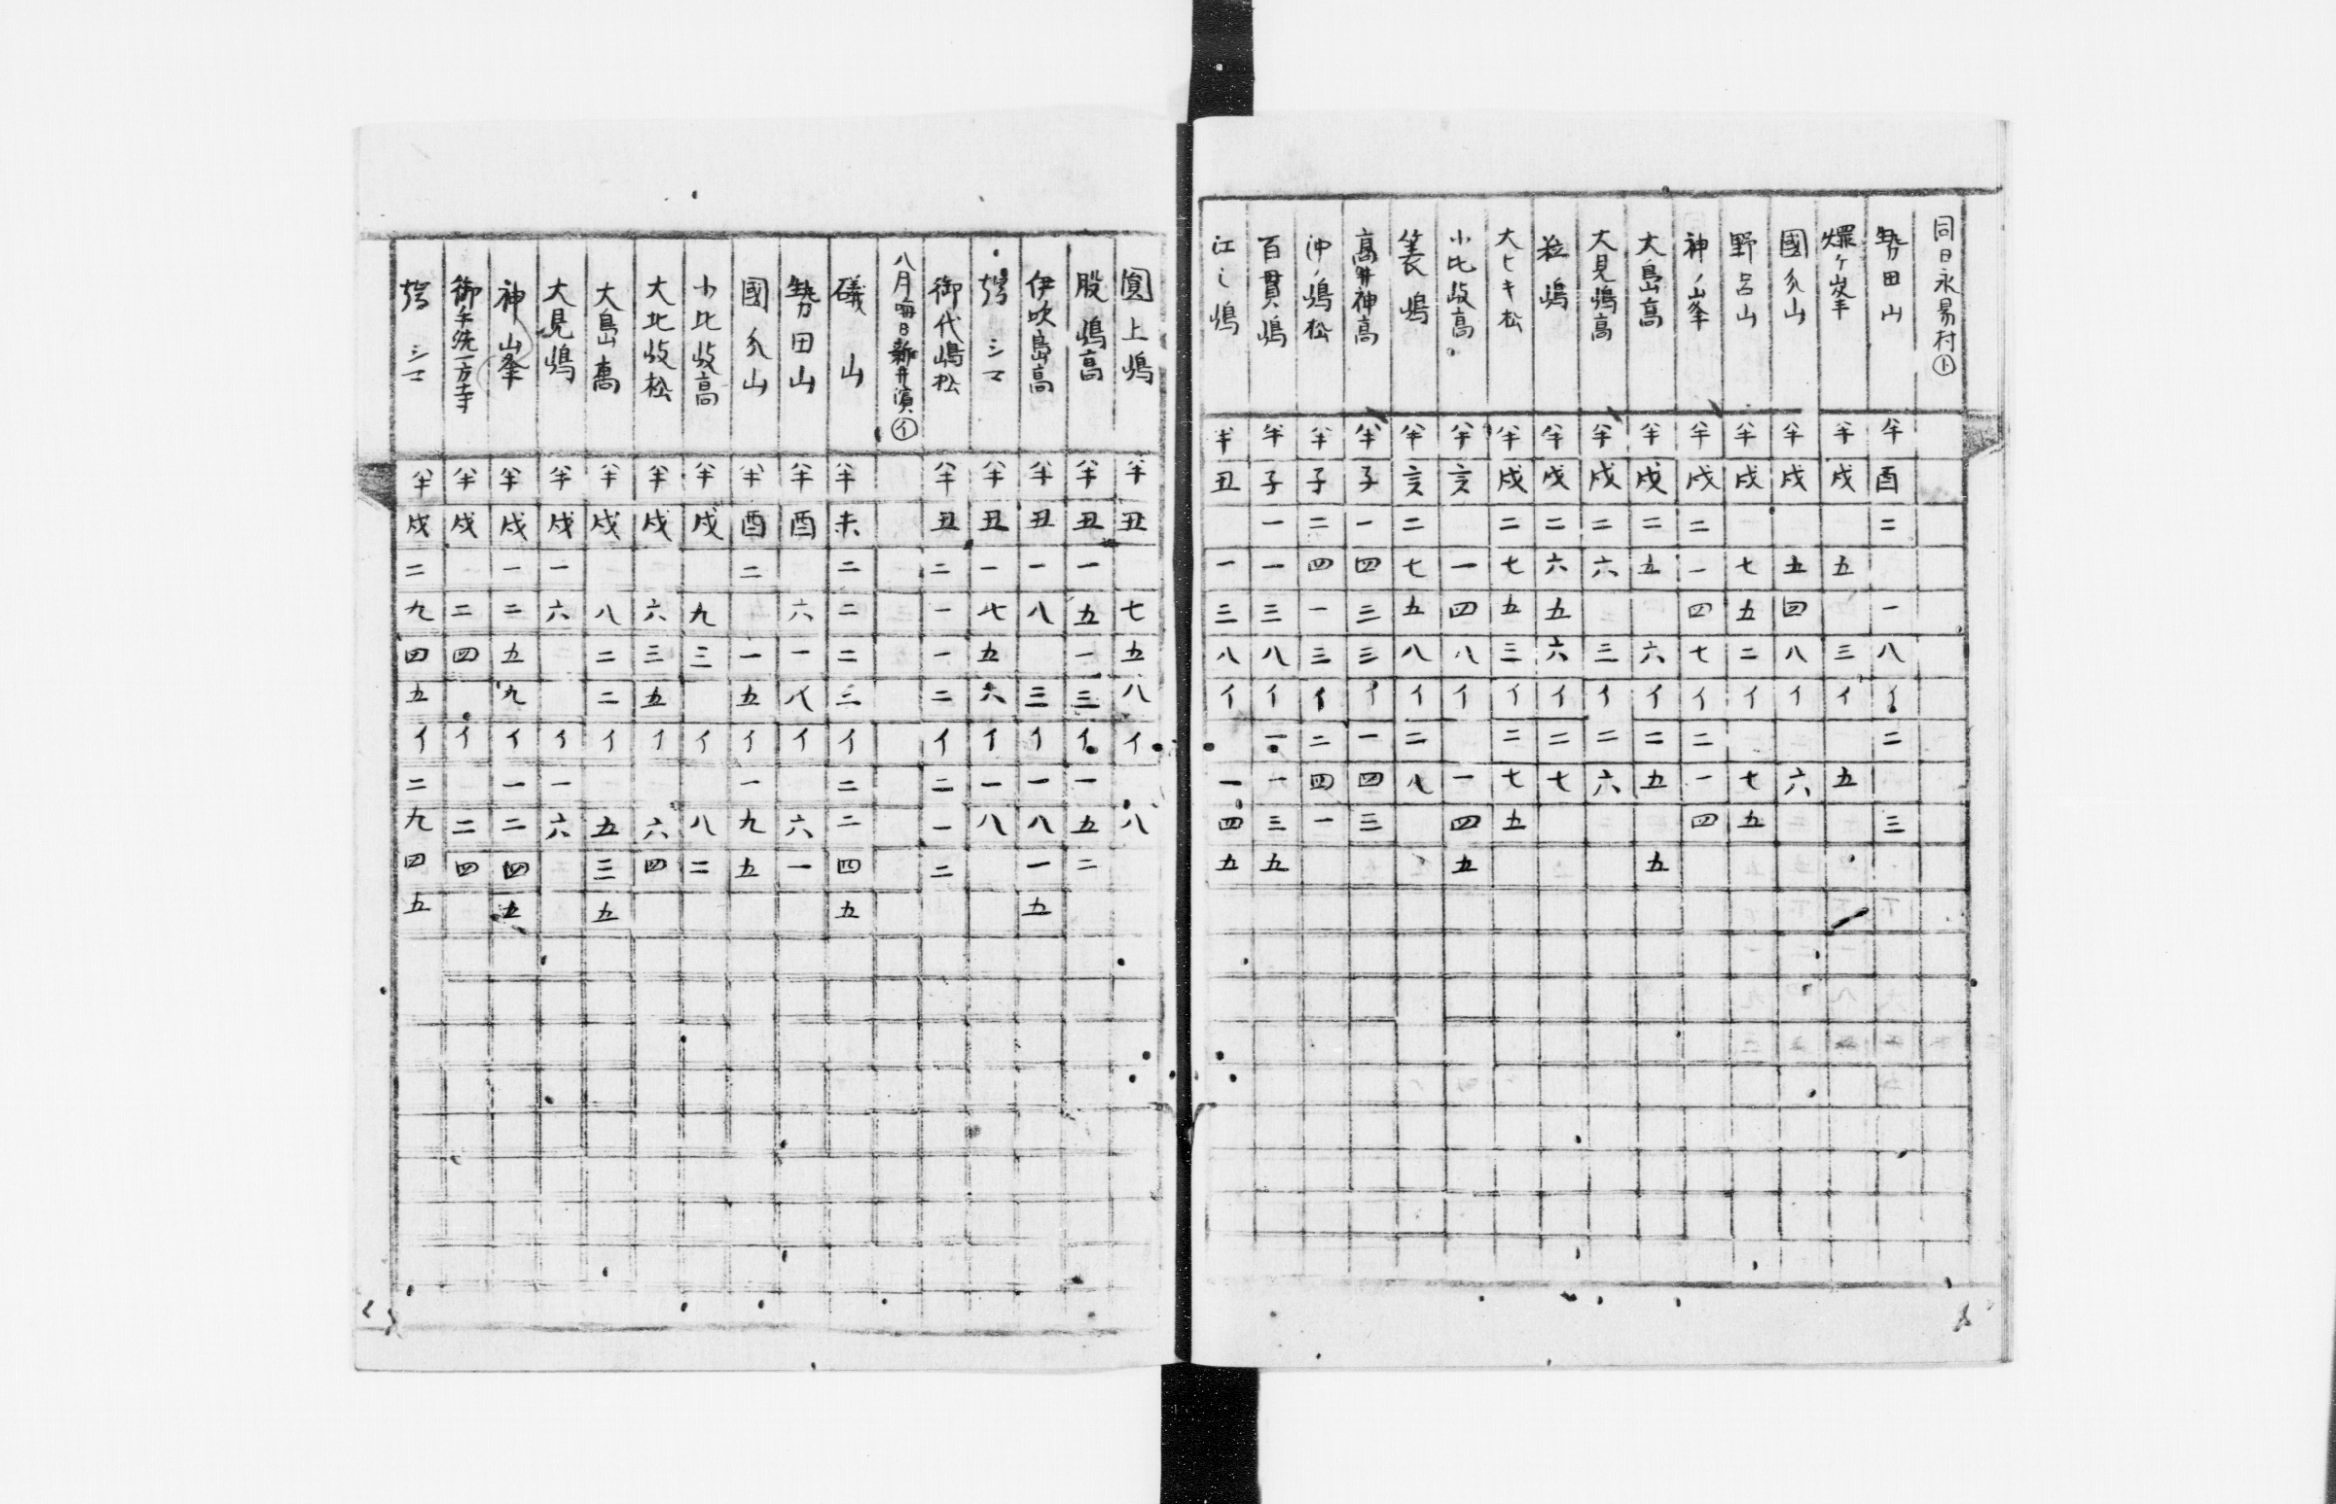 同日永易村㋣
勢田山 半酉二 一八イ二 三
燿ヶ峯 半戌 五 三イ 五
國分山 半戌 五四八イ 六
野呂山 半戌 七五二イ 七五
神ノ峯 半戌二一四七イ二一四
大島高 半戌二五 六イ二五 五
大見嶋高 半戌二六 三イ二六
粒嶋 半戌二六五六イ二七
大ヒキ松 半戌二七五三イ二七五
小比岐高 半亥 一四八イ 一四五
蓑嶋 半亥二七五八イ二八
高井神高 半子一四三三イ一四三
沖ノ嶋松 半子二四一三イ二四一
百貫嶋 半子一一三八イ一一三五
江之嶋 半丑 一三八イ 一四五
圓上嶋 半丑 七五八イ 八
股嶋高 半丑一五一三イ一五二
伊吹島高 半丑一八 三イ一八一五
シマ 半丑一七五六イ一八
御代嶋松 半丑二一一二イ二一二
八月晦日新井濱㋑
礒山 半未二二二三イ二二四五
勢田山 半酉 六一八イ 六一
國分山 半酉二 一五イ一九五
小比岐高 半戌 九三 イ 八二
大比岐松 半戌 六三五イ 六四
大島高 半戌 八二二イ 五三五
大見嶋 半戌一六 イ一六
神山峯 半戌一二五九イ一二四五
御手洗一方寺 半戌 二四 イ 二四
半戌二九四五イ二九四五